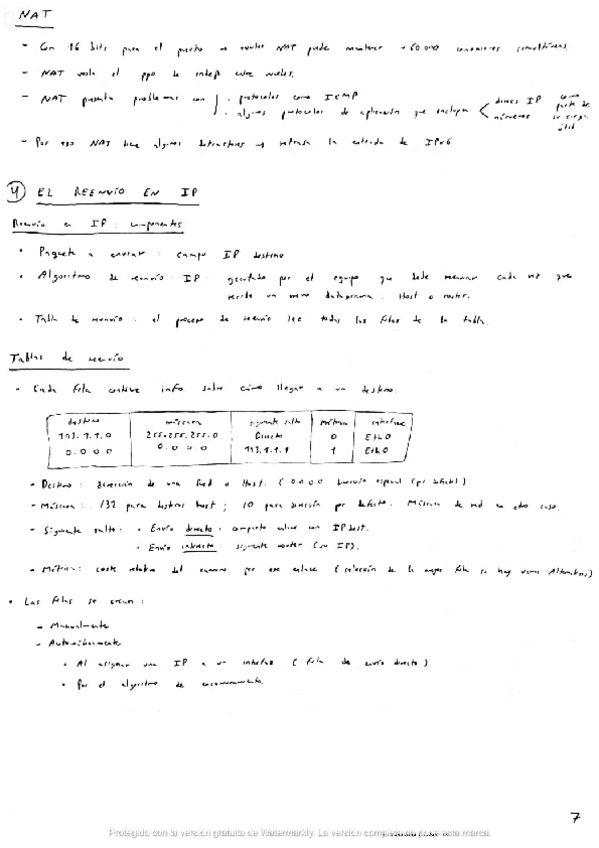 NAT
- Con 16 bits para el puerto un router NAT puede mantener +60.000 conexiones simultáneas.
- NAT viola el ppo de indep entre niveles.
- NAT presenta problemas con · protocolos como ICMP
· algunos protocolos de aplicación que incluyan direcs IP como parte de su carga útil
números
- Por eso NAT tiene algunos detractores → retrasa la entrada de IPv6
4 EL REENVÍO EN IP
Reenvío en IP: componentes
· Paquete a enviar: campo IP destino
· Algoritmo de reenvío IP: ejecutado por el equipo que debe reenviar cada vez que
recibe un nuevo datagrama. Host o router.
· Tabla de reenvío: el proceso de reenvío lee todas las filas de la tabla.
Tablas de reenvío
· Cada fila contiene info sobre cómo llegar a un destino.
destino máscara siguiente salto métrica interfaz
193.1.1.0 255.255.255.0 Directo 0 Eth0
0.0.0.0 0.0.0.0 193.1.1.1 1 Eth0
- Destino: dirección de una Red o Host. (0.0.0.0 dirección especial (por defecto)).
- Máscara: /32 para destinos host; /0 para dirección por defecto. Máscara de red en otro caso.
- Siguiente salto: · Envío directo: comparte enlace con IP dest.
· Envío indirecto: siguiente router (su IP).
- Métrica: coste relativo del camino por ese enlace (selección de la mejor fila si hay varias Alternativas)
· Las filas se crean:
- Manualmente
- Automáticamente
· Al asignar una IP a un interfaz (fila de envío directo).
· Por el algoritmo de encaminamiento.
7
Protegido con la versión gratuita de Watermarkly. La versión completa no pone esta marca.